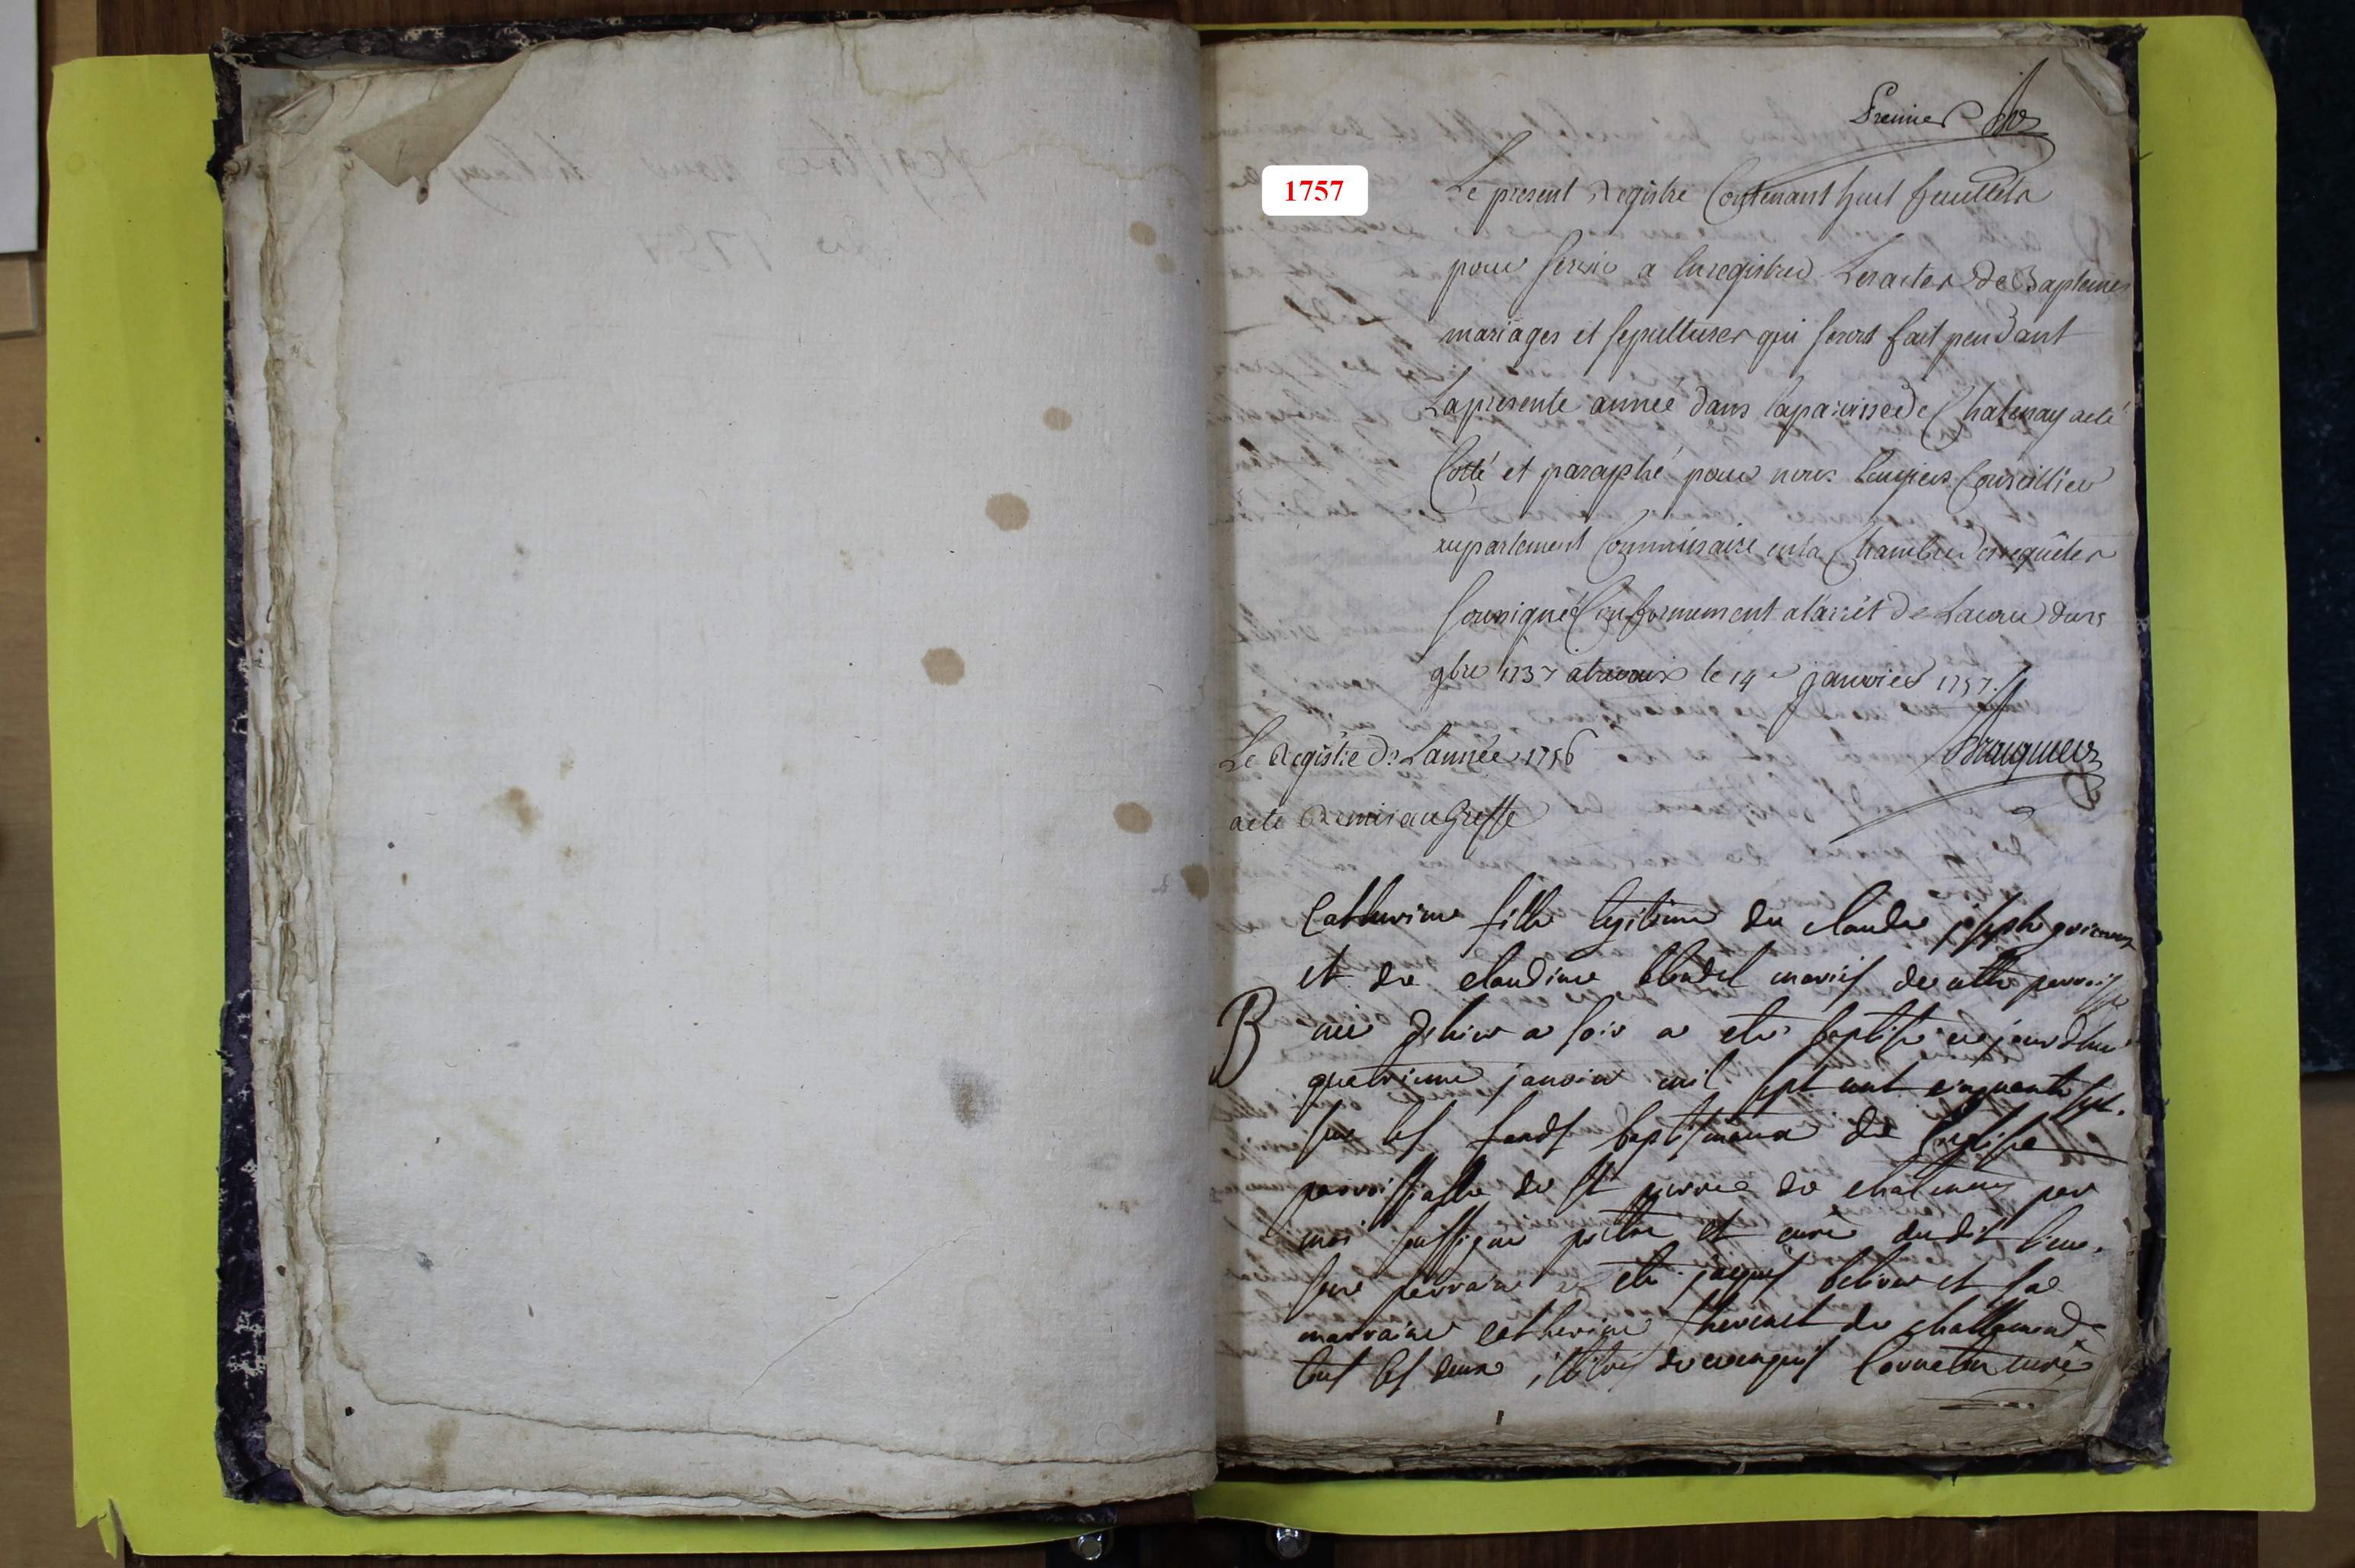 Premier
1757
Le present Registre Contenant huit feuillets
pour servir a Enregistrer Les actes de Baptemes
mariages et sepultures qui seront fait pendant
La presente année dans la paroisse de Chatenay a eté
Cotté et paraphé par nous Conseillier
au parlement Commissaire en la Chambre des requêtes
soussigné Conformement a l'arrêt de La cour du
9bre 1737 a trevoux le 14e janvier 1757.
Le Registre De L'année 1756
a eté Remis au Greffe
Catherine fille legitime de claude joseph
et de claudine mariés de cette parroisse
B née d'hier a soir a eté baptisée ce jourd'hui
quatrieme janvier mil sept cent cinquante sept.
sur les fonds baptismaux de l'eglise
parroissialle de st pierre de chatenay par
moi soussigné prêtre et curé du dit lieu.
son parrain a eté jacques et sa
marraine catherine thevenet de chattenay
tous les deux illitérés de ce enquis curé